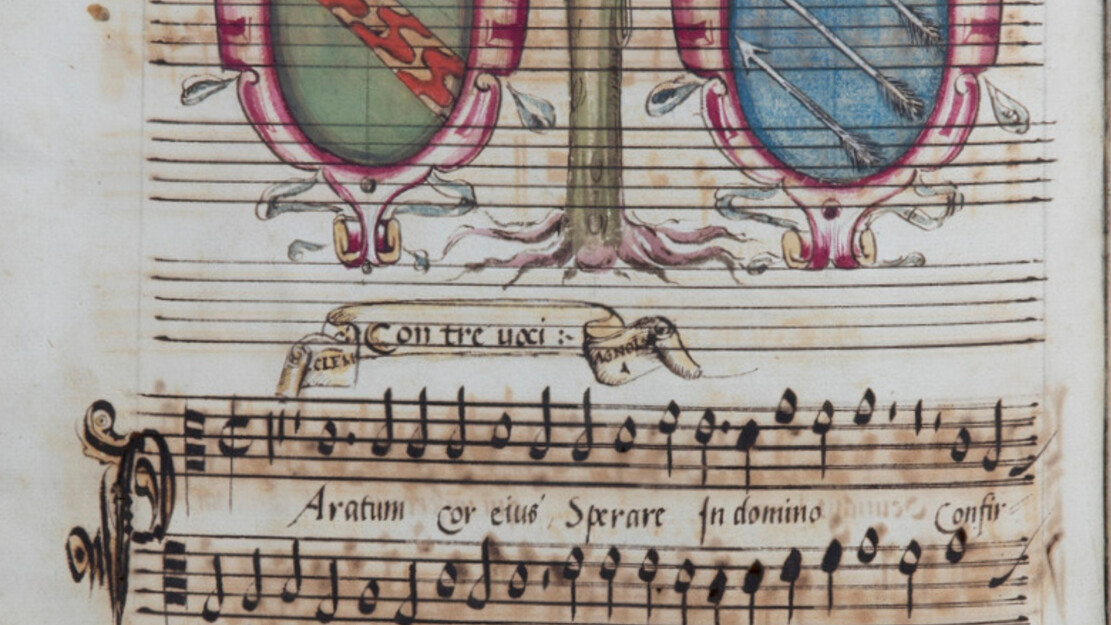 Con tre uoci :~
CLEM
AGNOLA
Paratum cor eius Sperare In domino Confir-